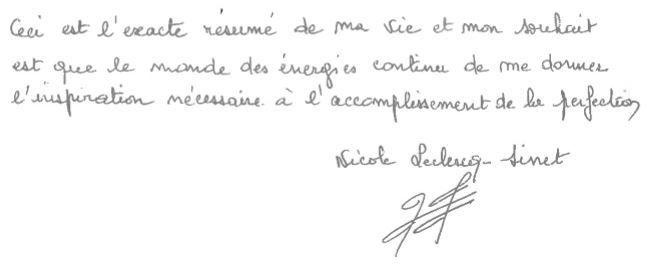 Ceci est l'exacte résumé de ma vie et mon souhait
est que le monde des énergies continu de me donner
l'inspiration nécessaire à l'accomplissement de la perfection
Nicole Leclercq-Sinet